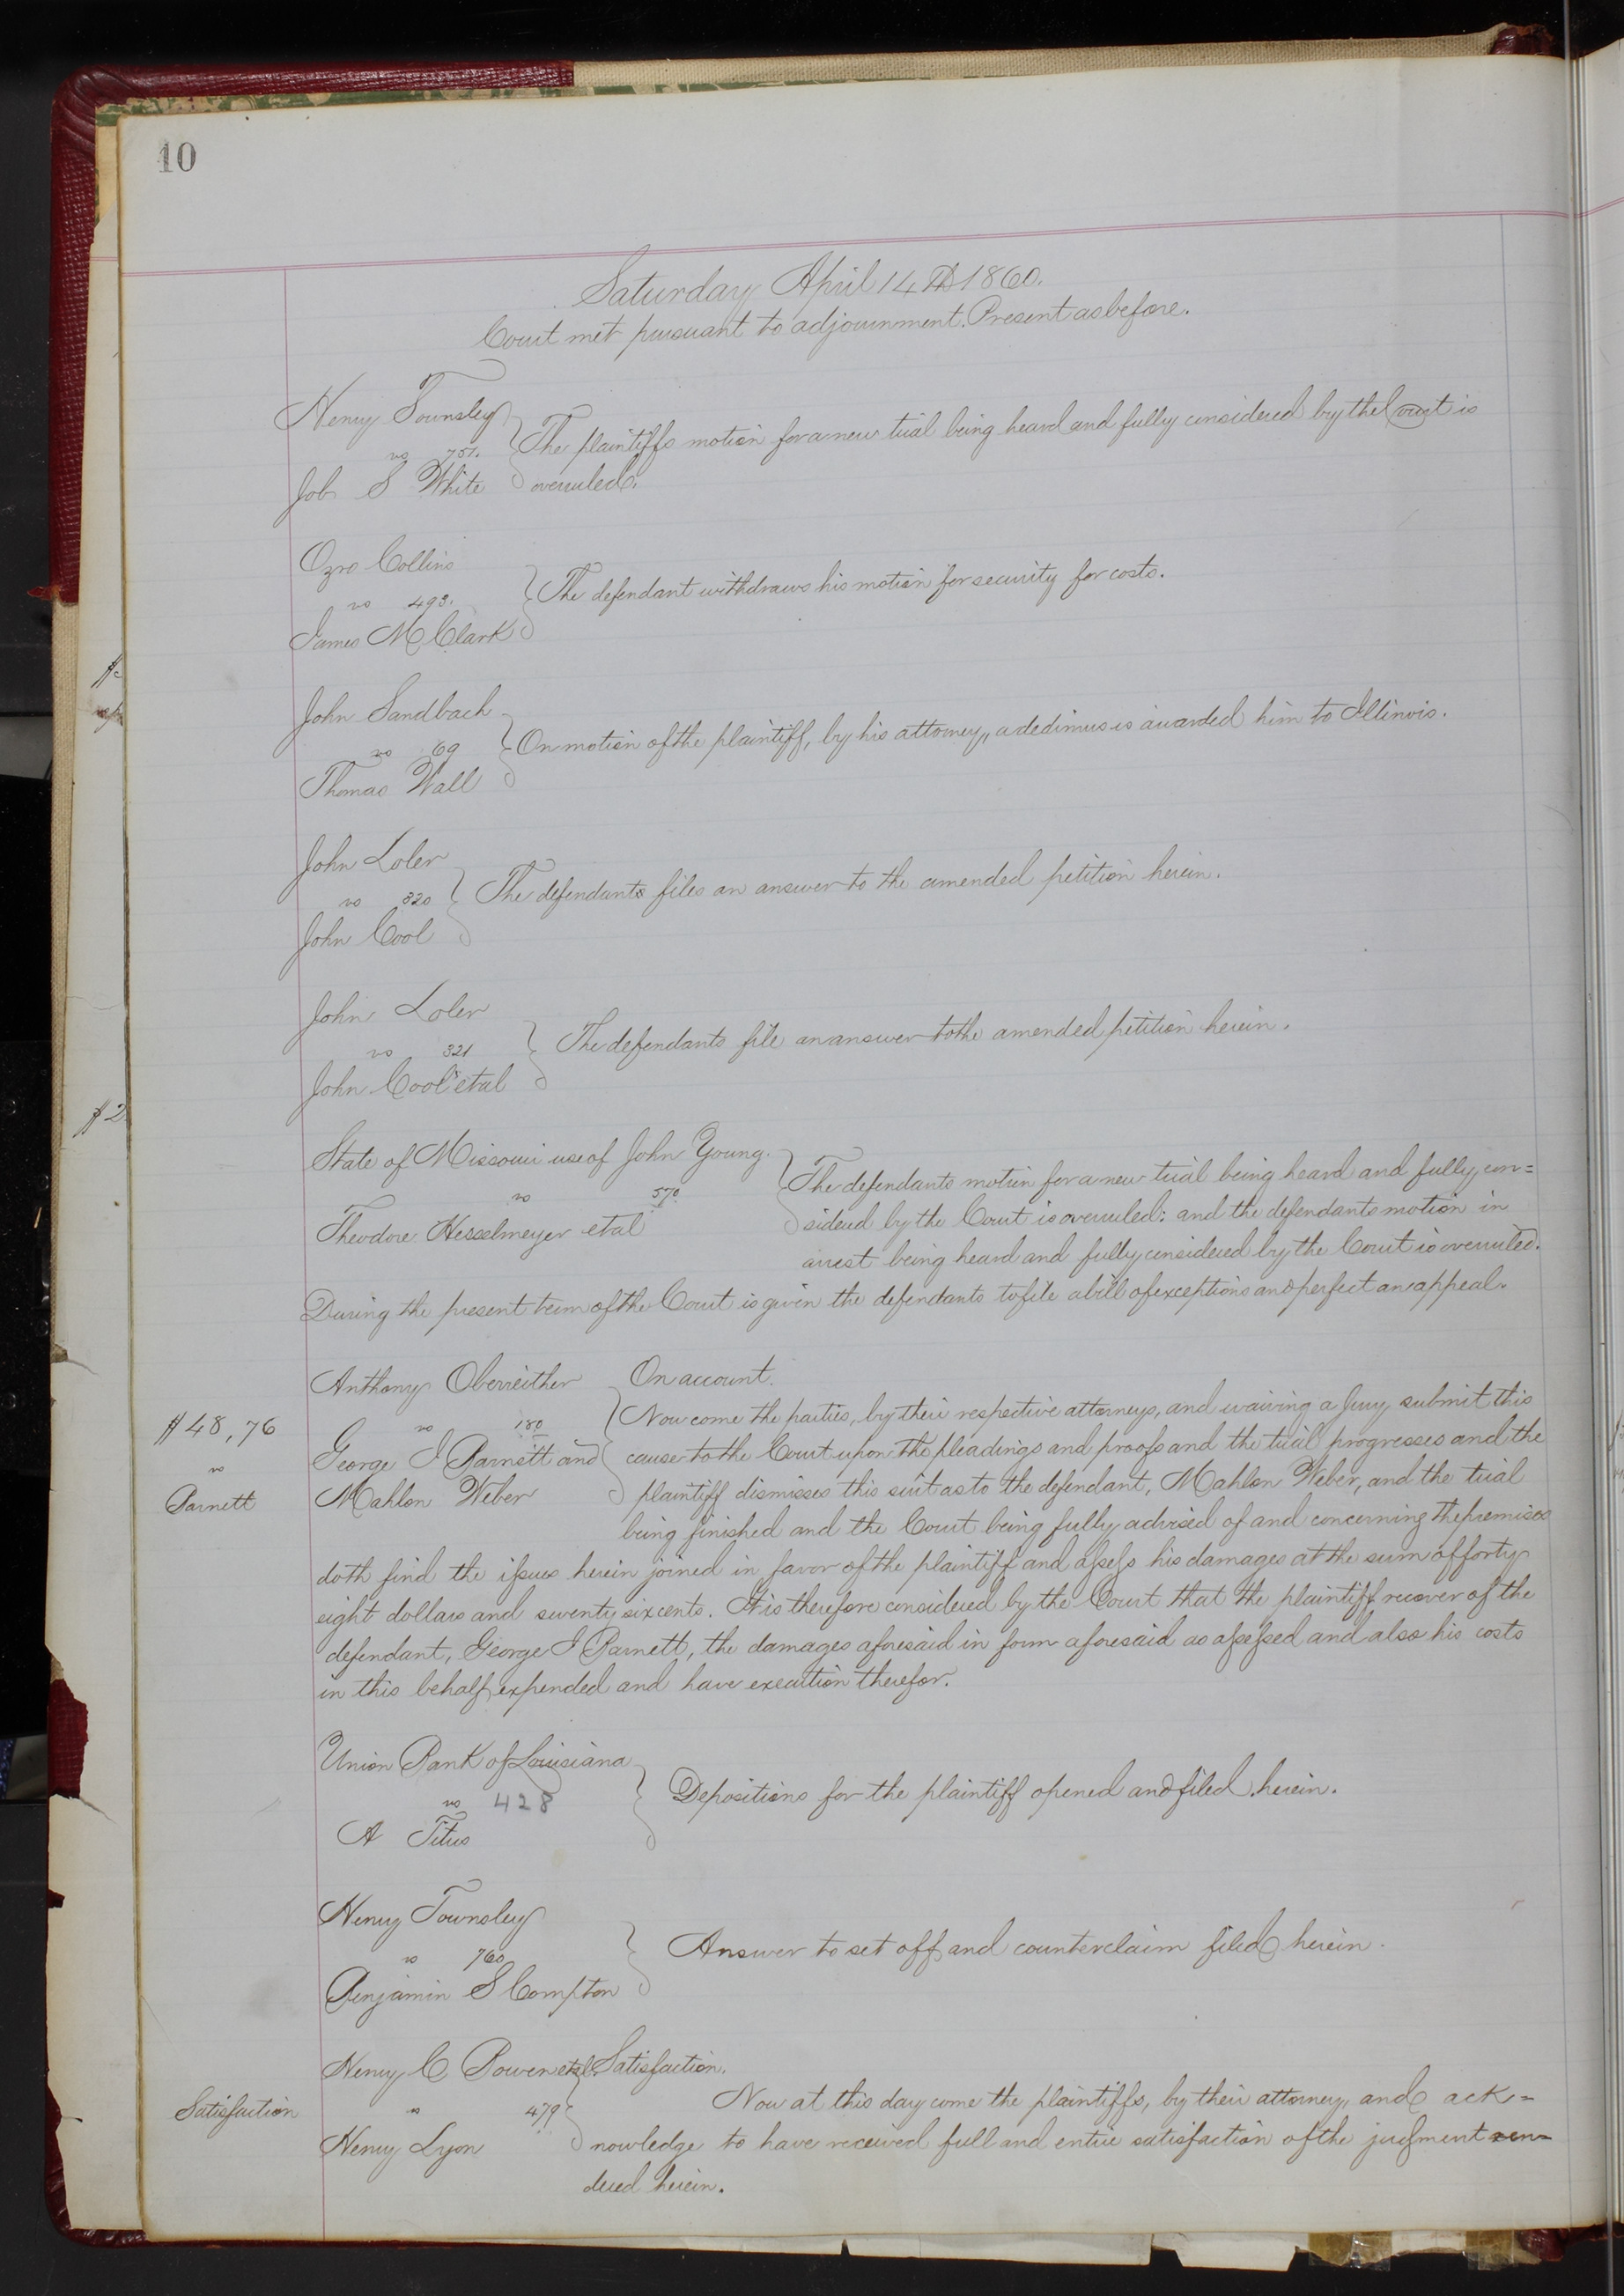 10
Saturday April 14th 1860.
Court met pursuant to adjournment. Present as before.
Henry Townsley
vs 751.
Job S White
The plaintiffs motion for a new trial being heard and fully considered by the Court is
overruled.
Ozro Collins
vs 493.
James M Clark
The defendant withdraws his motion for security for costs.
John Sandbach
vs 69
Thomas Wall
On motion of the plaintiff, by his attorney, a dedimus is awarded him to Illinois.
John Loler
vs 320
John Cool
The defendants files an answer to the amended petition herein.
John Loler
vs 321
John Cool et al
The defendants file an answer to the amended petition herein.
State of Missouri use of John Young.
vs 570
Theodore Hesselmeyer et al
The defendants motion for a new trial being heard and fully con=
sidered by the Court is overruled: and the defendants motion in
arrest being heard and fully considered by the Court is overruled.
During the present term of the Court is given the defendants to file a bill of exceptions and perfect an appeal.
$48,76
vs
Barnett
Anthony Oberreither
vs 180
George I Barnett and
Mahlon Weber
On account.
Now come the parties, by their respective attorneys, and waiving a Jury submit this
cause to the Court upon the pleadings and proofs and the trial progresses and the
plaintiff dismisses this suit as to the defendant, Mahlon Weber, and the trial
being finished and the Court being fully advised of and concerning the premises
doth find the issues herein joined in favor of the plaintiff and assess his damages at the sum of forty
eight dollars and seventy six cents. It is therefore considered by the Court that the plaintiff recover of the
defendant, George I Barnett, the damages aforesaid in form aforesaid as assessed and also his costs
in this behalf expended and have execution therefor.
Union Bank of Louisiana
vs 428
A Titus
Depositions for the plaintiff opened and filed herein.
Henry Townsley
vs 760
Benjamin S Compton
Answer to set off and counterclaim filed herein.
Satisfaction
Henry C Bowen et al
vs 479
Henry Lyon
Satisfaction.
Now at this day come the plaintiffs, by their attorney, and ack=
nowledge to have received full and entire satisfaction of the judgment ren=
dered herein.